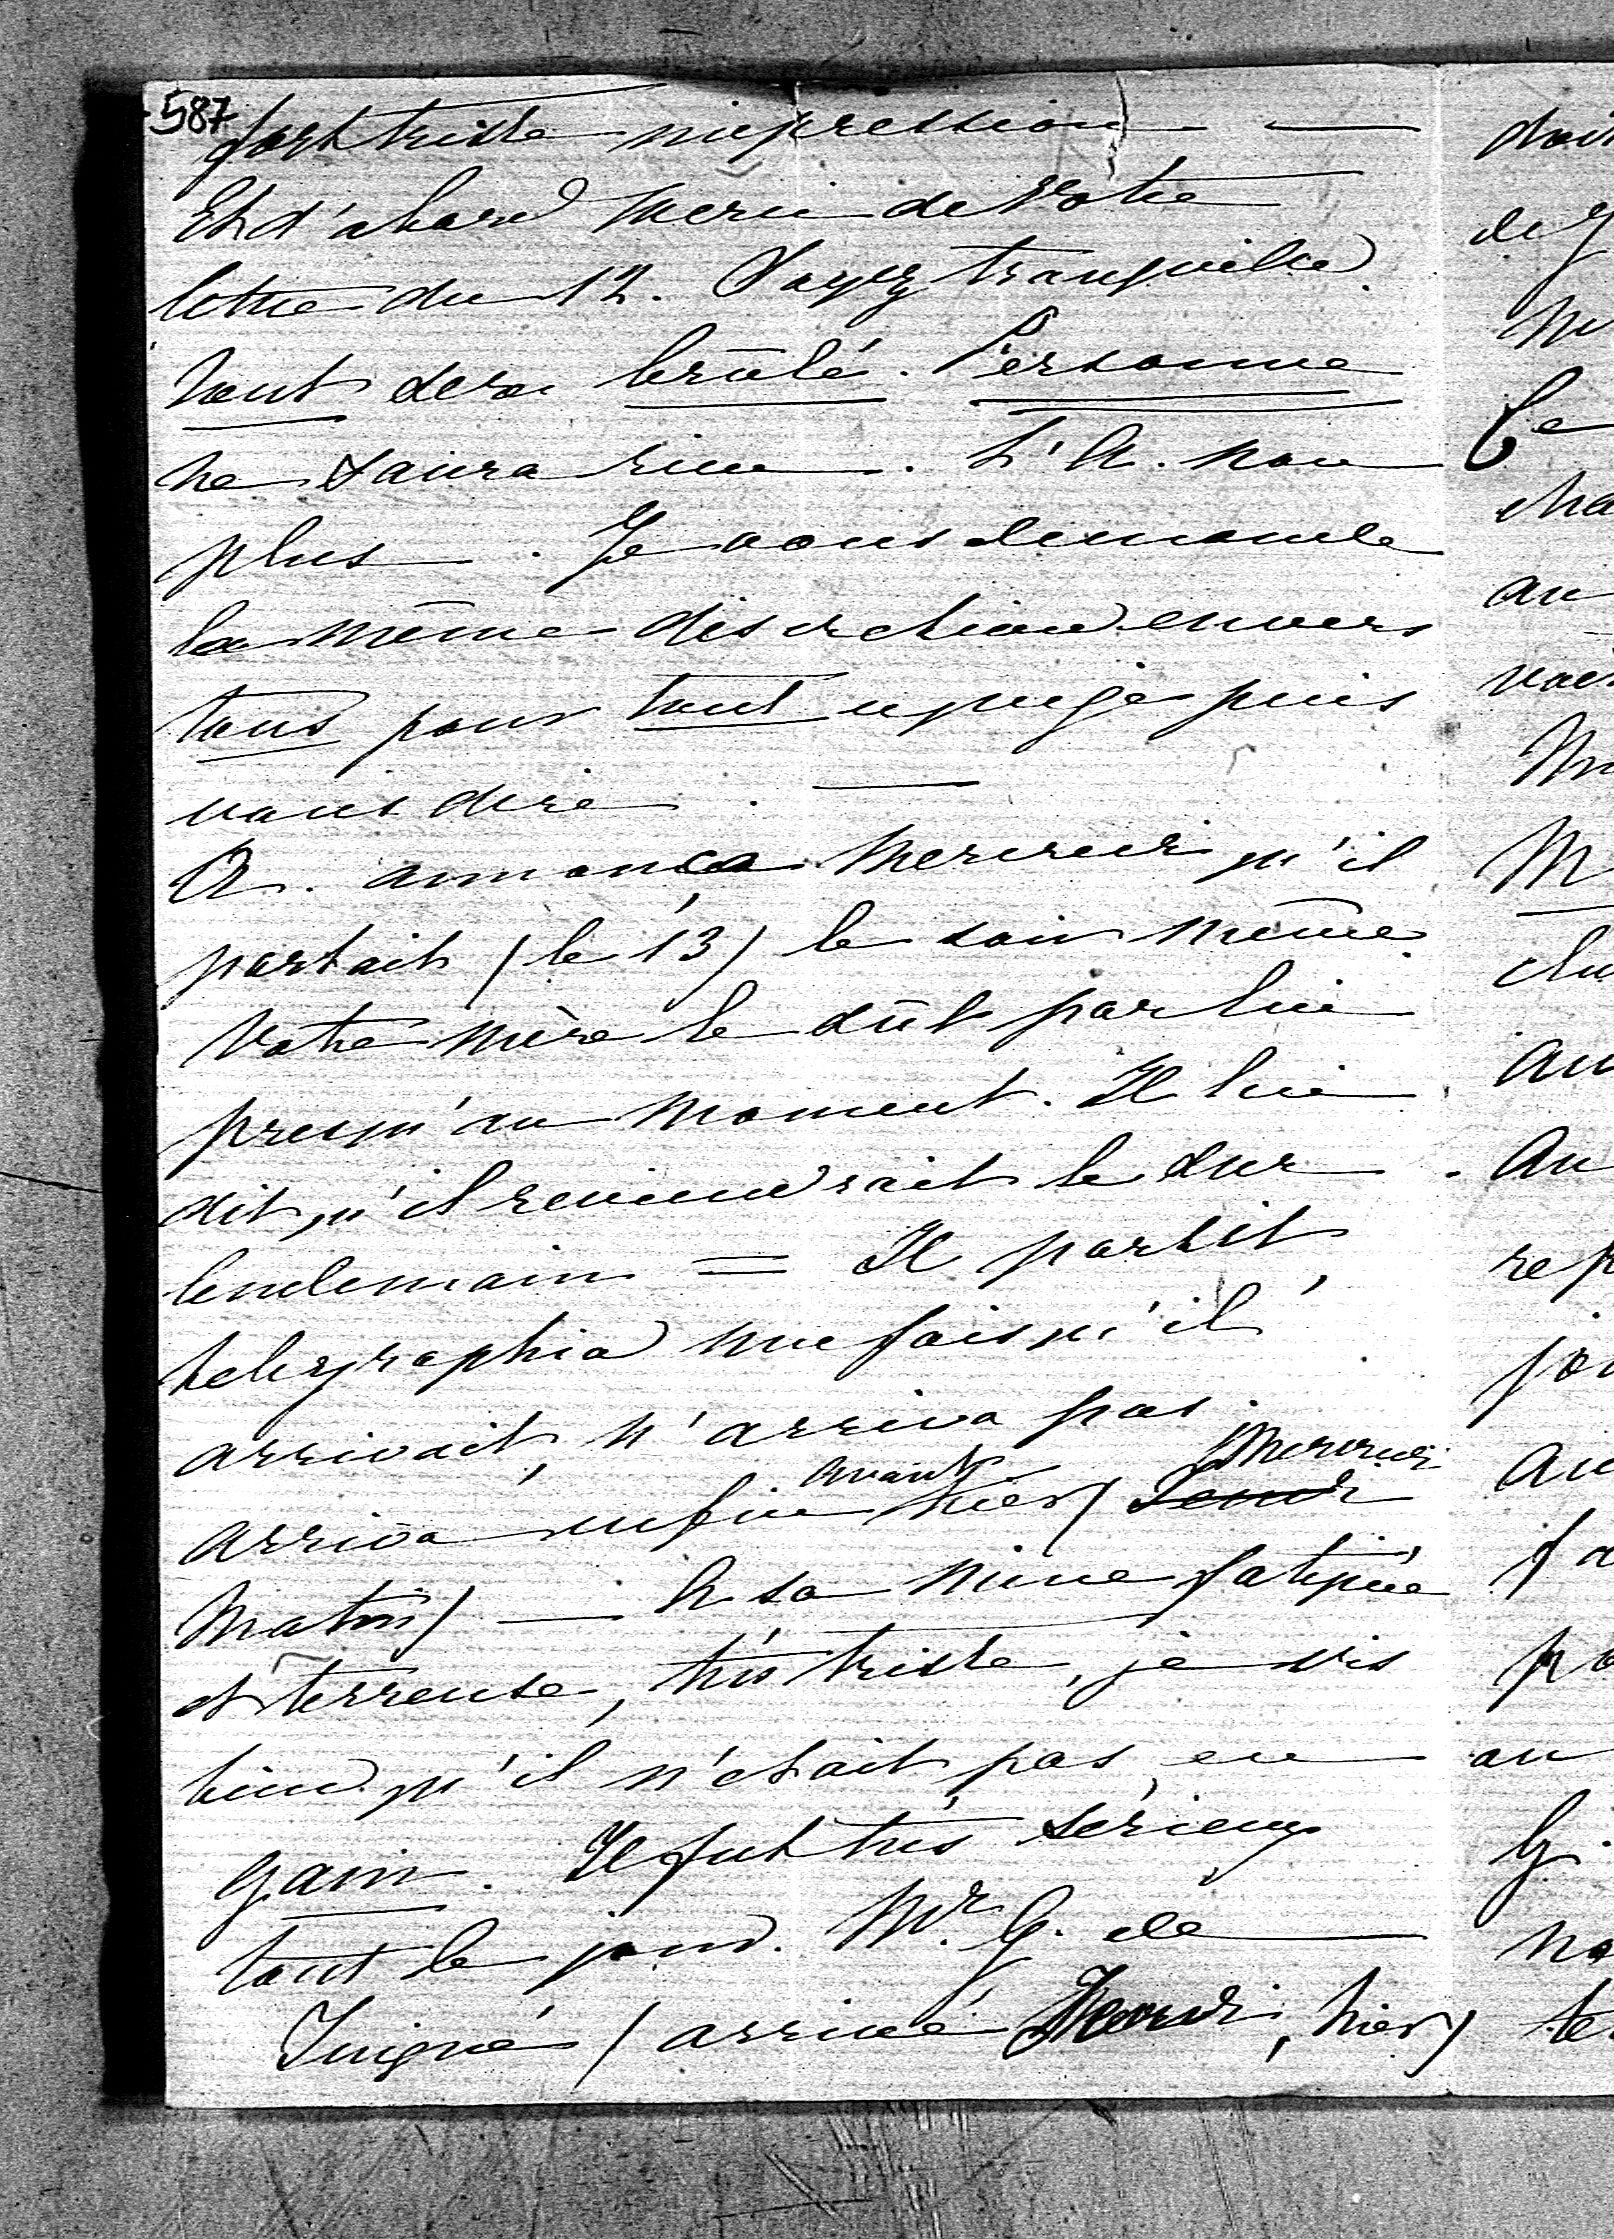 587
fort triste impression —
Et d'abord merci de Votre
lettre du 12. Soyez tranquille.
Tout sera brûlé. Personne
ne saura rien. L'A. non
plus. Je vous demande
la même discretion envers
tous pour tout ce que je puis
vous dire. —
A. annonça Mercredi qu'il
partait (le 13) le soir même.
Votre mère le sût par lui
presqu'au moment. Il lui
dit qu'il reviendrait le sur
lendemain = Il partit,
telegraphia une fois qu'il
arrivait, n'arriva pas.
arriva enfin avant hier (Mercredi
matin) — A sa mine fatiguée
et terreuse, très triste, je vis
bien qu'il n'etait pas en
gain. Il fut très sérieux
tout le jour. Mr G. de
Juigné (arrivé Mardi, hier)